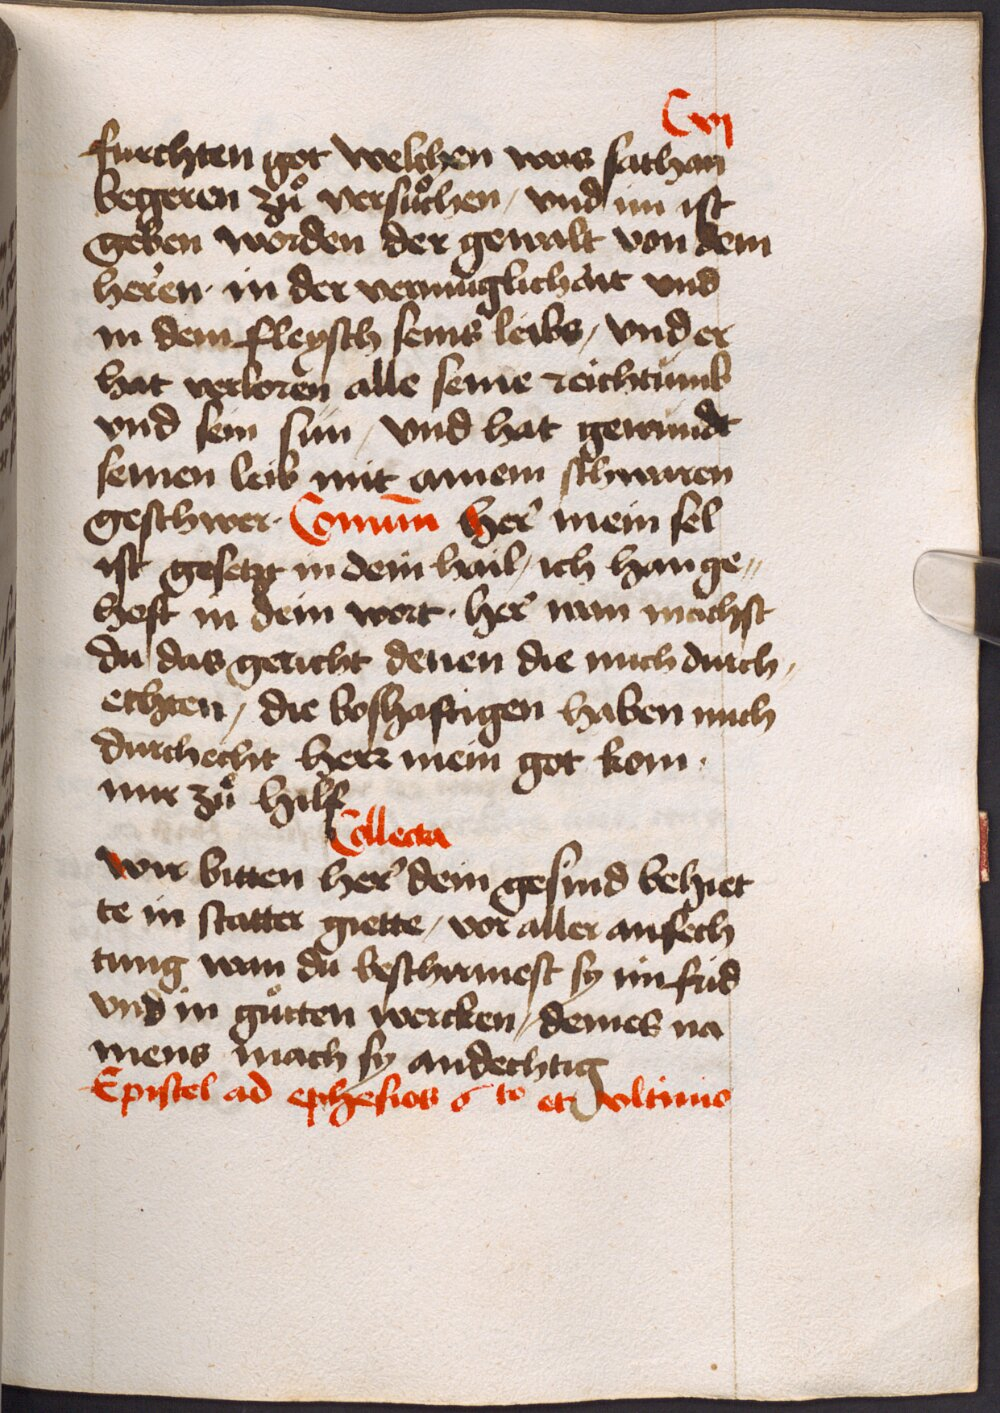 Cvj
furchten got welchen was sathan
begeren zů versůchen / vnd im ist
geben worden der gewalt von dem
heren · in der vermuglichait vnd
in dem fleysch seins leibs / vnd er
hat verloren alle seine reichtumb
vnd sein sun / vnd hat gewundt
seinen leib mit ainem schwaren
geschwer · Comum̄ her mein sel
ist gesetzt in dein hail / ich han ge〃
heft in dein wort · her wan machst
du das gericht denen die mich durch /
echten / die boshaftigen haben mich
durchecht herr mein got kom ·
mir zů hilf
Collecta
wir bitten her dein gesind behiet
te in statter giette / vor aller anfech
tung wan du beschirmest sy im frid
vnd in gůtten wercken / deines na
mens mach sy andechtig
Epistel ad ephesios 6 to et vltimo